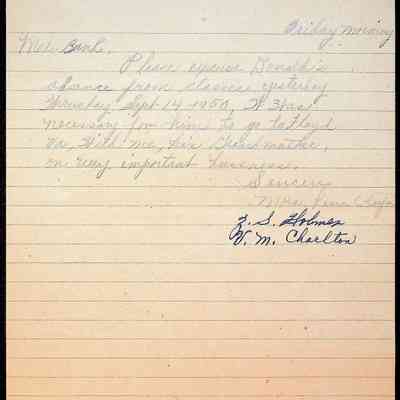 Friday morning
Mr. Bank.
Please excuse Donald's
absence from classes yesterday
Thursday Sept 14 - 1950, It was
necessary for him to go to Floyd
Va, With me, his Grandmother,
on very important business.
Sincery
Mrs.
Z. S. Holmes
V. M. Charlton